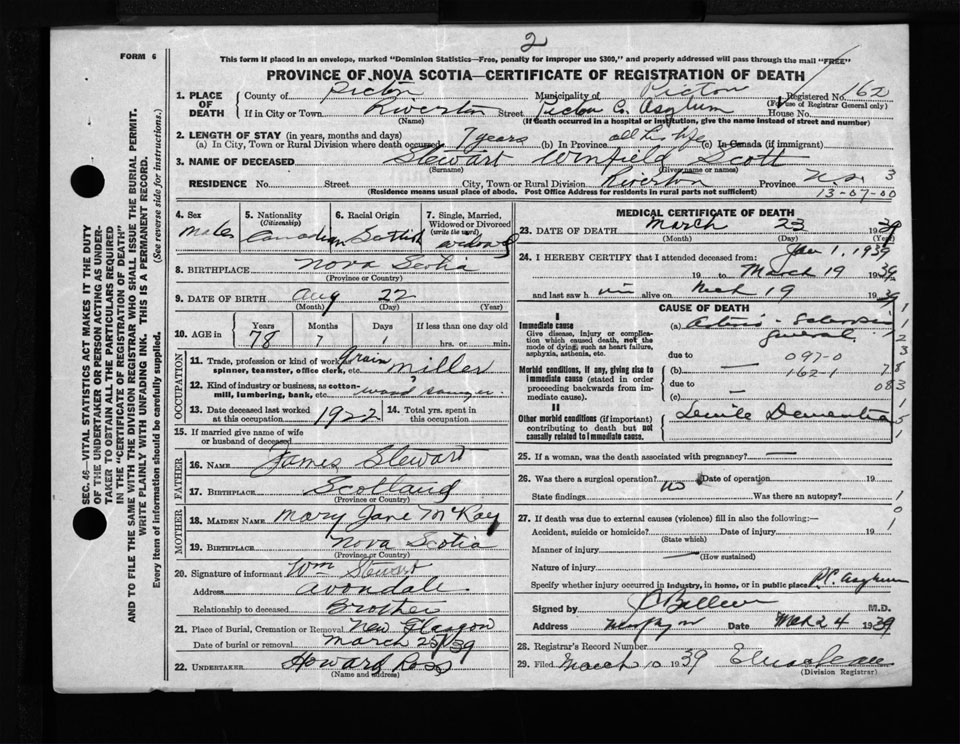 2
FORM 6
This form if placed in an envelope, marked "Dominion Statistics—Free, penalty for improper use $300," and properly addressed will pass through the mail "FREE"
PROVINCE OF NOVA SCOTIA—CERTIFICATE OF REGISTRATION OF DEATH
1. PLACE OF DEATH
County of Pictou Municipality of Pictou Registered No. 162
(For use of Registrar General only)
If in City or Town Riverton Street Pictou Co. Asylum House No.
(Name) (If death occurred in a hospital or institution, give the name instead of street and number)
2. LENGTH OF STAY (in years, months and days)
(a) In City, Town or Rural Division where death occurred 7 years (b) In Province all his life (c) In Canada (if immigrant)
3. NAME OF DECEASED Stewart Winfield Scott
(Surname) (Given name or names)
RESIDENCE No. Street City, Town or Rural Division Riverton Province N.S. 3
(Residence means usual place of abode. Post Office Address for residents in rural parts not sufficient) 13-07-00
4. Sex Male
5. Nationality (Citizenship) Canadian
6. Racial Origin Scottish
7. Single, Married, Widowed or Divorced (write the word) widowed
8. BIRTHPLACE Nova Scotia
(Province or Country)
9. DATE OF BIRTH Aug 22
(Month) (Day) (Year)
10. AGE in Years 78 Months 7 Days 1 If less than one day old hrs. or min.
OCCUPATION
11. Trade, profession or kind of work as spinner, teamster, office clerk, etc. Grain miller
12. Kind of industry or business, as cotton-mill, lumbering, bank, etc.
13. Date deceased last worked at this occupation 1922
14. Total yrs. spent in this occupation
15. If married give name of wife or husband of deceased
FATHER
16. NAME James Stewart
17. BIRTHPLACE Scotland
(Province or Country)
MOTHER
18. MAIDEN NAME Mary Jane McKay
19. BIRTHPLACE Nova Scotia
(Province or Country)
20. Signature of informant Wm Stewart
Address Avondale
Relationship to deceased Brother
21. Place of Burial, Cremation or Removal New Glasgow
Date of burial or removal March 25/39
22. UNDERTAKER Howard Ross
(Name and address)
MEDICAL CERTIFICATE OF DEATH
23. DATE OF DEATH March 23 1939
(Month) (Day) (Year)
24. I HEREBY CERTIFY that I attended deceased from: Jan 1, 1939
19 to March 19 1939
and last saw him alive on Mch 19 1939
CAUSE OF DEATH
I
Immediate cause
Give disease, injury or complication which caused death, not the mode of dying, such as heart failure, asphyxia, asthenia, etc.
(a)
general
due to 097-0
Morbid conditions, if any, giving rise to immediate cause (stated in order proceeding backwards from immediate cause).
(b) — 162-1
due to 083
(c)
II
Other morbid conditions (if important) contributing to death but not causally related to immediate cause.
Senile Dementia
25. If a woman, was the death associated with pregnancy? —
26. Was there a surgical operation? no Date of operation 19
State findings Was there an autopsy?
27. If death was due to external causes (violence) fill in also the following:—
Accident, suicide or homicide? Date of injury 19
(State which)
Manner of injury —
(How sustained)
Nature of injury
Specify whether injury occurred in industry, in home, or in public place P.C. Asylum
Signed by M.D.
Address Date Mch 24 1939
28. Registrar's Record Number
29. Filed March 1939
(Division Registrar)
SEC. 46—VITAL STATISTICS ACT MAKES IT THE DUTY
OF THE UNDERTAKER OR PERSON ACTING AS UNDERTAKER
TO OBTAIN ALL THE PARTICULARS REQUIRED
IN THE "CERTIFICATE OF REGISTRATION OF DEATH"
AND TO FILE THE SAME WITH THE DIVISION REGISTRAR WHO SHALL ISSUE THE BURIAL PERMIT.
WRITE PLAINLY WITH UNFADING INK. THIS IS A PERMANENT RECORD.
Every item of information should be carefully supplied. (See reverse side for instructions.)